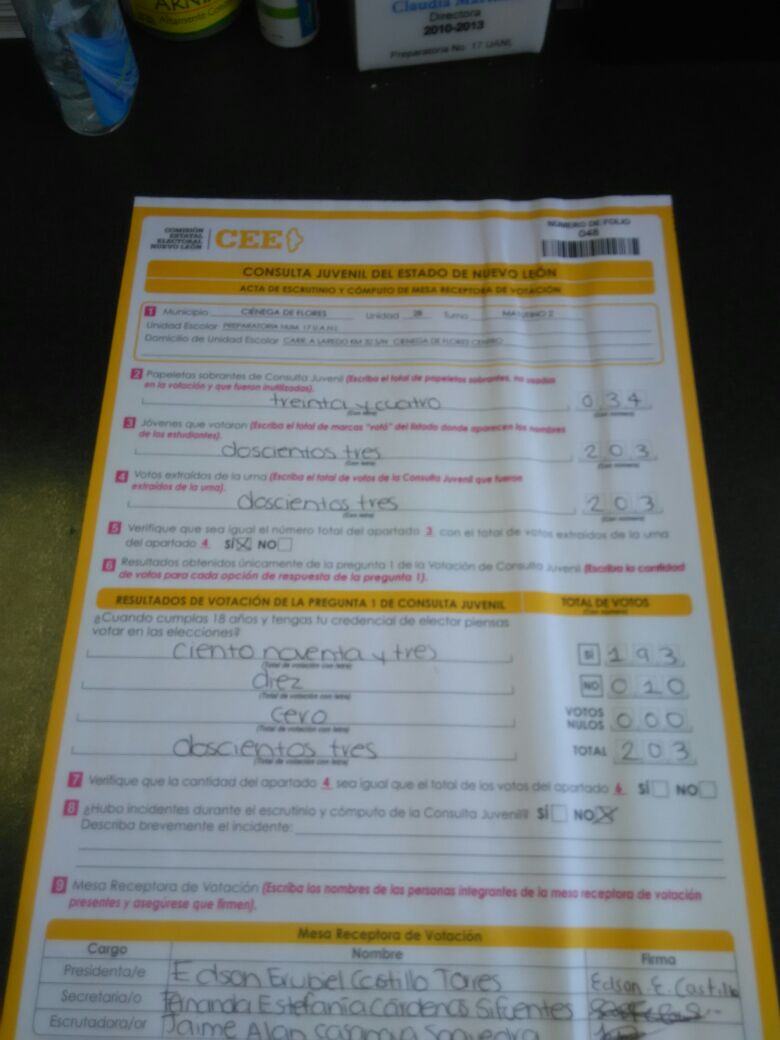 ARNI
Altamente
Claudia
Directora
2010-2013
Preparatoria No. 17 UANL
COMISIÓN
ESTATAL
ELECTORAL
NUEVO LEÓN
CEE
NÚMERO DE FOLIO
048
CONSULTA JUVENIL DEL ESTADO DE NUEVO LEÓN
ACTA DE ESCRUTINIO Y CÓMPUTO DE MESA RECEPTORA DE VOTACIÓN
1 Municipio CIÉNEGA DE FLORES Unidad 28 Turno MATUTINO 2
Unidad Escolar PREPARATORIA NUM. 17 U.A.N.L.
Domicilio de Unidad Escolar CARR. A LAREDO KM 32 S/N CIENEGA DE FLORES CENTRO
2 Papeletas sobrantes de Consulta Juvenil (Escriba el total de papeletas sobrantes, no usadas
en la votación y que fueron inutilizadas).
treinta y cuatro 034
(Con letra) (Con número)
3 Jóvenes que votaron (Escriba el total de marcas "votó" del listado donde aparecen los nombres
de los estudiantes).
doscientos tres 203
(Con letra) (Con número)
4 Votos extraídos de la urna (Escriba el total de votos de la Consulta Juvenil que fueron
extraídos de la urna).
doscientos tres 203
(Con letra) (Con número)
5 Verifique que sea igual el número total del apartado 3 con el total de votos extraídos de la urna
del apartado 4 SÍ X NO
6 Resultados obtenidos únicamente de la pregunta 1 de la Votación de Consulta Juvenil (Escriba la cantidad
de votos para cada opción de respuesta de la pregunta 1).
RESULTADOS DE VOTACIÓN DE LA PREGUNTA 1 DE CONSULTA JUVENIL TOTAL DE VOTOS
(Con número)
¿Cuando cumplas 18 años y tengas tu credencial de elector piensas
votar en las elecciones?
ciento noventa y tres SÍ 193
(Total de votación con letra)
diez NO 010
(Total de votación con letra)
cero VOTOS NULOS 000
(Total de votación con letra)
doscientos tres TOTAL 203
(Total de votación con letra)
7 Verifique que la cantidad del apartado 4 sea igual que el total de los votos del apartado 6. SÍ NO
8 ¿Hubo incidentes durante el escrutinio y cómputo de la Consulta Juvenil? SÍ NO X
Describa brevemente el incidente:
9 Mesa Receptora de Votación (Escriba los nombres de las personas integrantes de la mesa receptora de votación
presentes y asegúrese que firmen).
Mesa Receptora de Votación
Cargo Nombre Firma
Presidenta/e Edson Erubel Castillo Torres Edson. E. Castillo
Secretaria/o Fernanda Estefania Cárdenas Sifuentes
Escrutadora/or Jaime Alan Casanova Saavedra